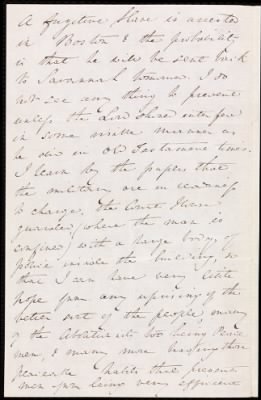 A fugitive Slave is arrested
in Boston & the probability
is that he will be sent back
to Savannah tomorrow. I do
not see any thing to prevent
unless the Lord should interfere
in some visible manner as
he did in Old Testament times.
I learn by the papers that
the military are in readiness
to charge. The Court House
guarded, where the man is
confined, with a large body of
police inside the building, so
that I can have very little
hope from any uprising of the
better sort of the people, many
of the Abolitionists too being Peace
men, & many more having those
habits that prevent
men from being very efficient